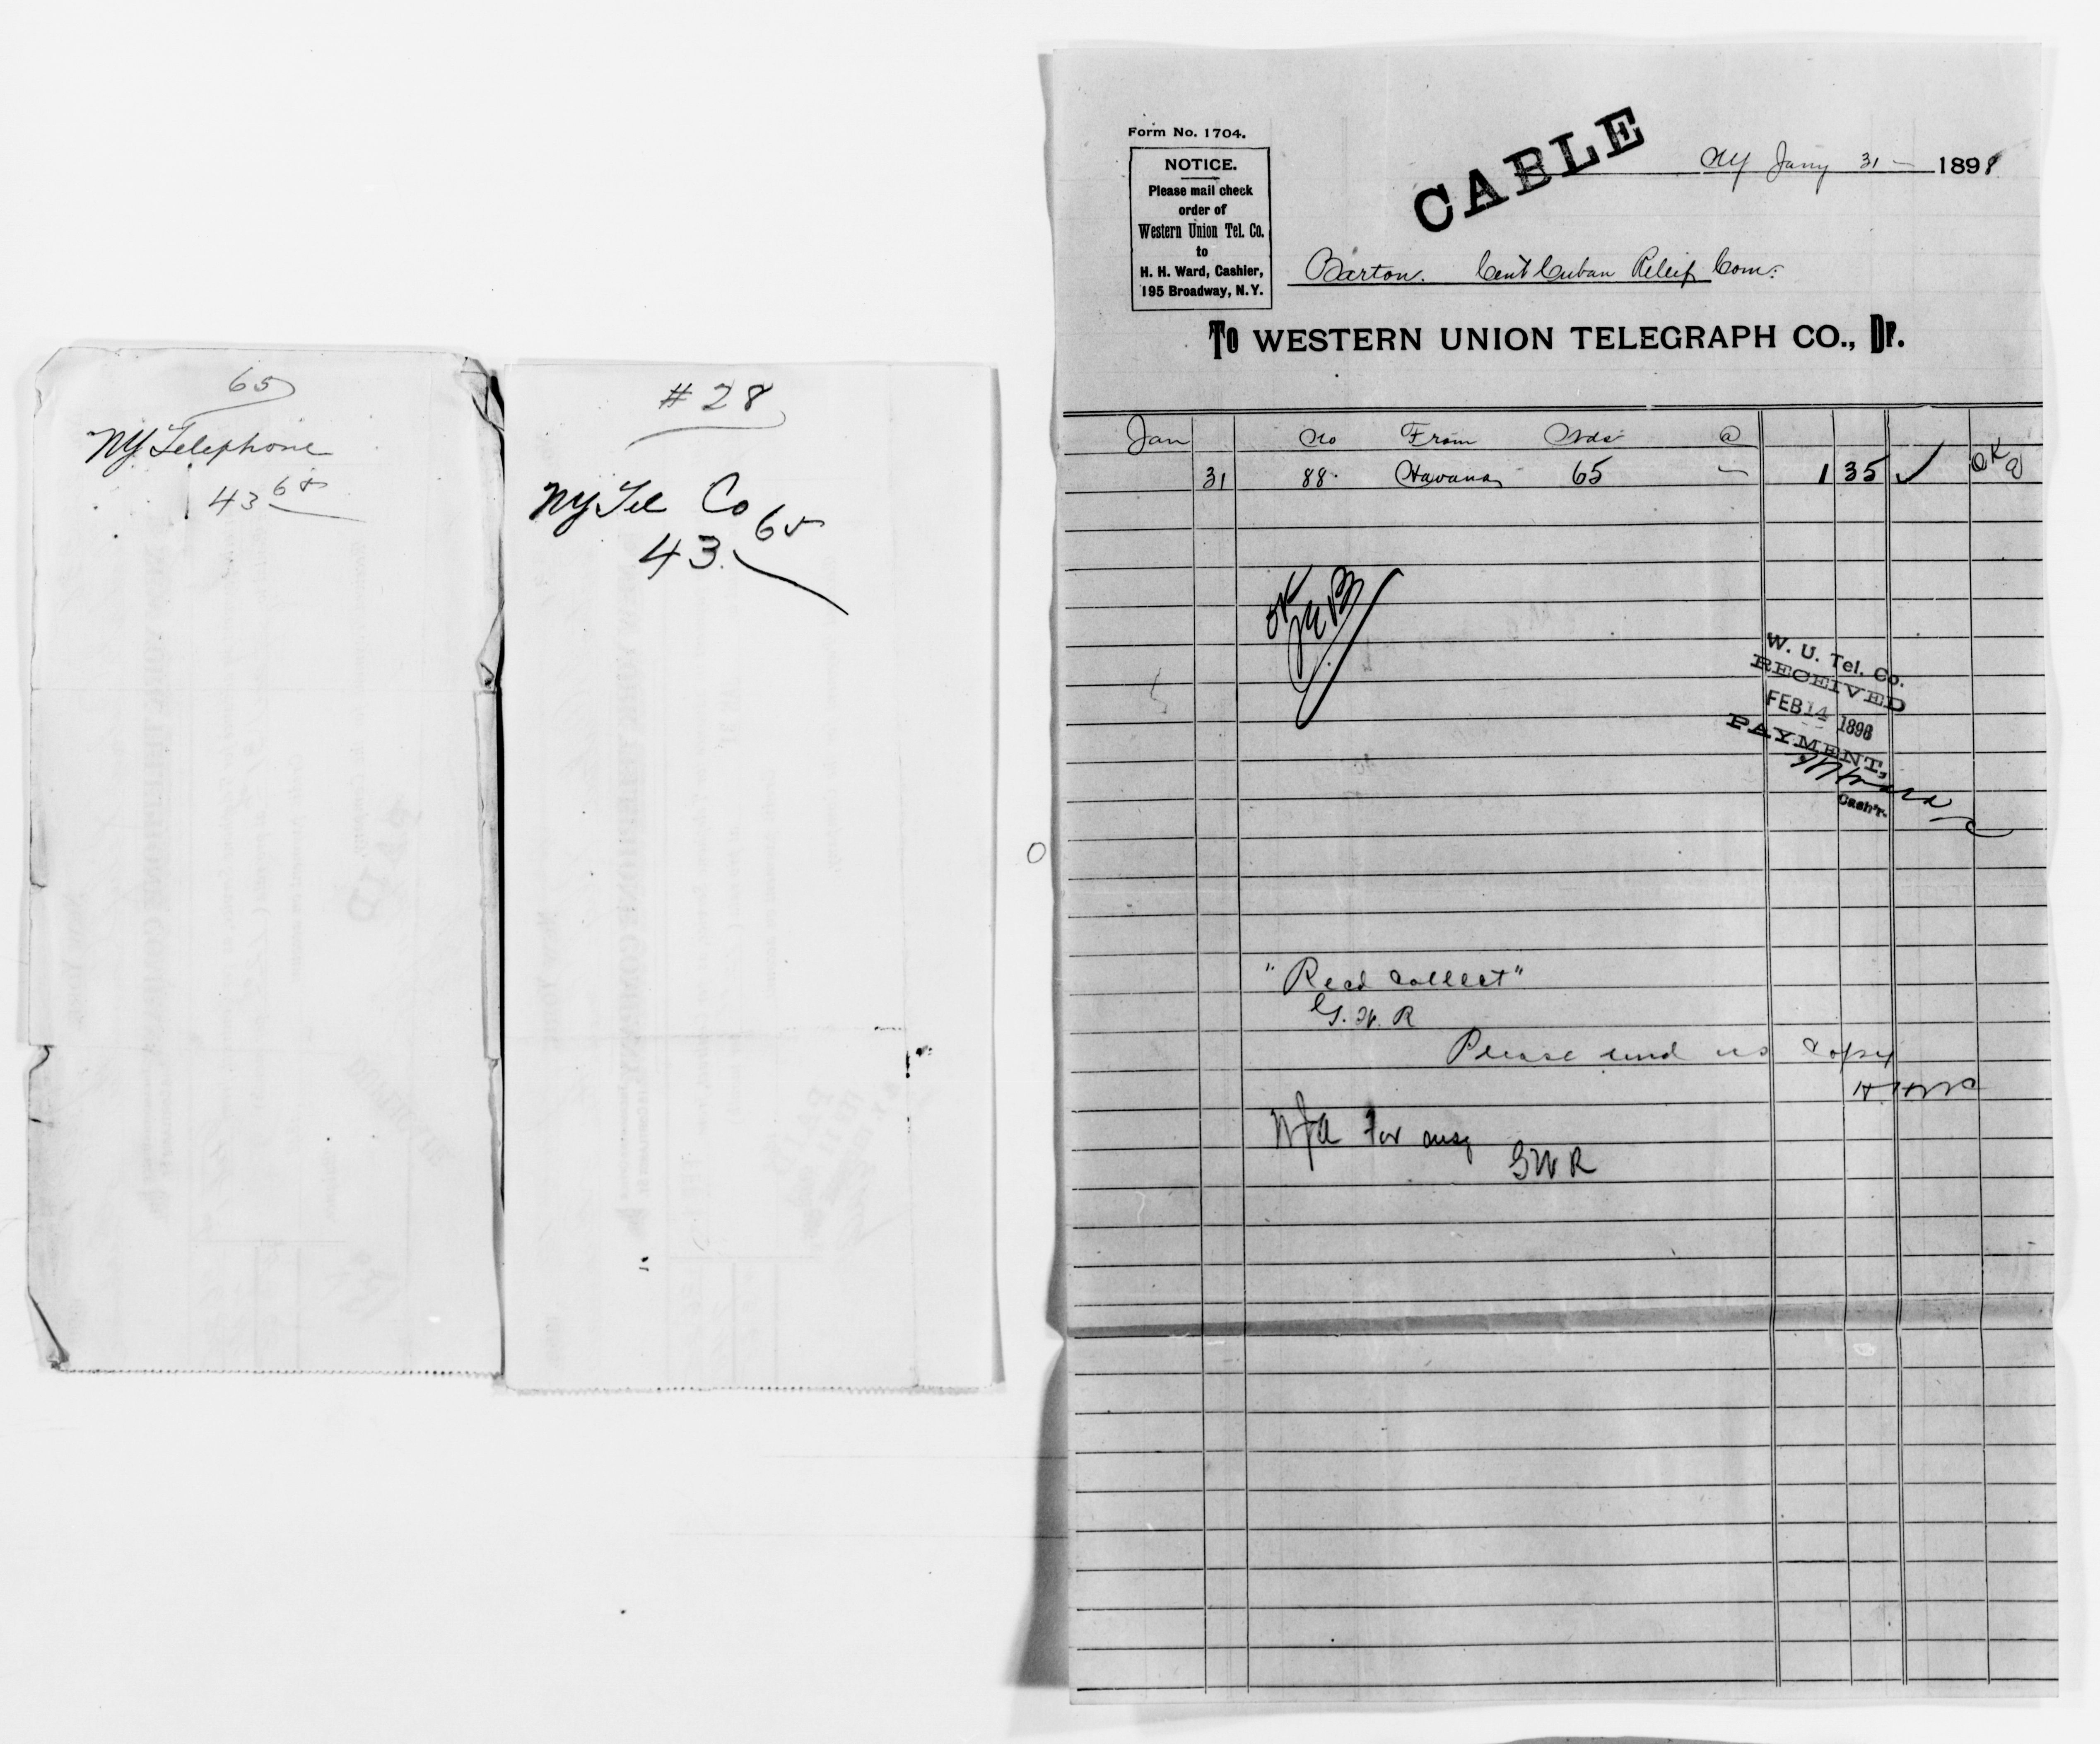 65
NY Telephone
43 65
# 28
NY Tel Co
43. 65
Form No. 1704.
NOTICE.
Please mail check
order of
Western Union Tel. Co.
to
H. H. Ward, Cashier,
195 Broadway, N.Y.
CABLE
NY Jany 31 — 1898
Barton. Cent Cuban Relief Com:
To WESTERN UNION TELEGRAPH CO., Dr.
Jan No From Wds @
31 88. Havana 65 — 1 35 ✓ OK
OK
W. U. Tel. Co.
RECEIVED
FEB 14 1898
PAYMENT,
Cash'r.
"Recd Collect"
G. W. R
Please send us copy
for msg
GWR